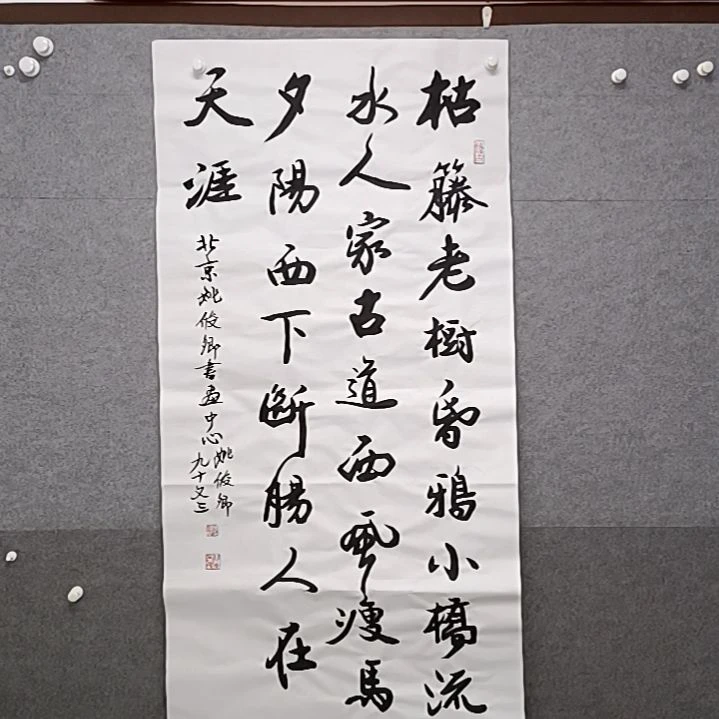 枯籐老樹昏鴉小橋流
水人家古道西風瘦馬
夕陽西下斷腸人在
天涯
北京姚俊卿書畫中心姚俊卿
九十又三